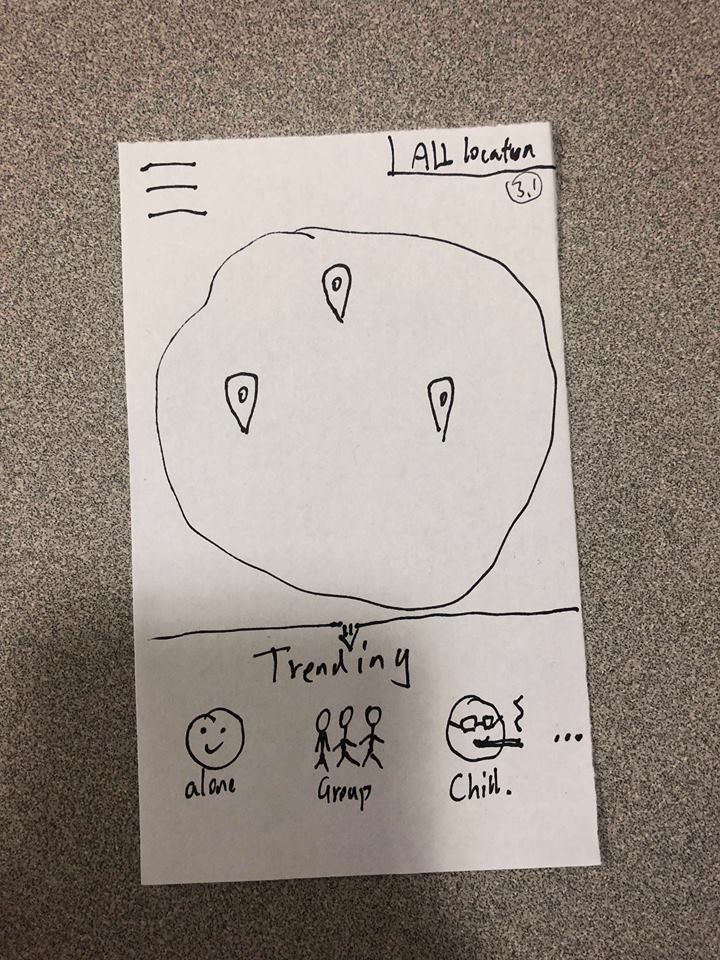 ALL location
3.1
Trending
alone
Group
Chill.
...